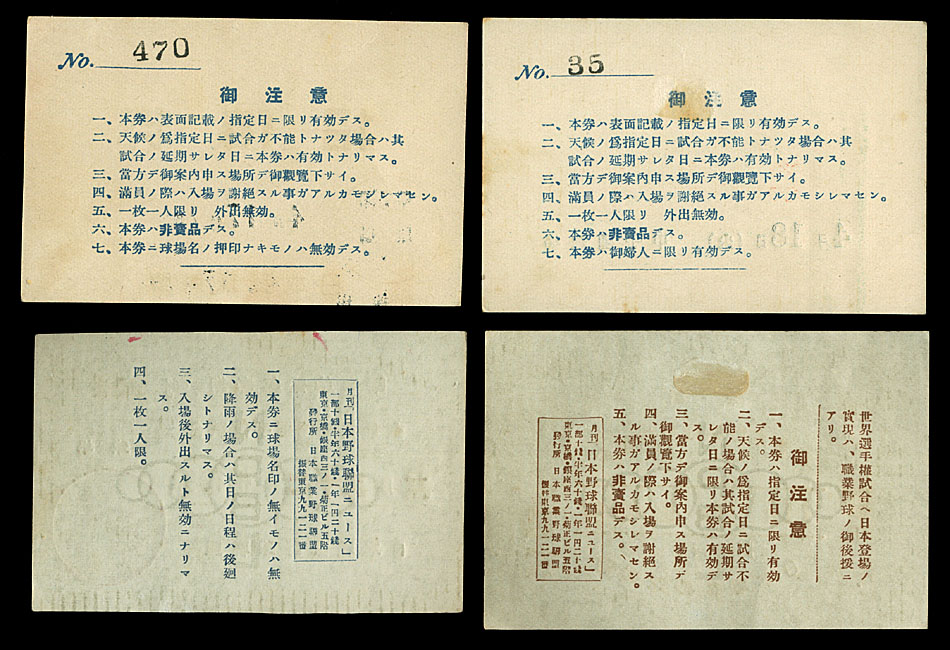 No. 470
御注意
一、本券ハ表面記載ノ指定日ニ限リ有効デス。
二、天候ノ爲指定日ニ試合ガ不能トナツタ場合ハ其
試合ノ延期サレタ日ニ本券ハ有効トナリマス。
三、當方デ御案内申ス場所デ御觀覽下サイ。
四、滿員ノ際ハ入場ヲ謝絶スル事ガアルカモシレマセン。
五、一枚一人限リ 外出無効。
六、本券ハ非賣品デス。
七、本券ニ球場名ノ押印ナキモノハ無効デス。
No. 35
御注意
一、本券ハ表面記載ノ指定日ニ限リ有効デス。
二、天候ノ爲指定日ニ試合ガ不能トナツタ場合ハ其
試合ノ延期サレタ日ニ本券ハ有効トナリマス。
三、當方デ御案内申ス場所デ御觀覽下サイ。
四、滿員ノ際ハ入場ヲ謝絶スル事ガアルカモシレマセン。
五、一枚一人限リ 外出無効。
六、本券ハ非賣品デス。
七、本券ハ御婦人ニ限リ有効デス。
月刊「日本野球聯盟ニュース」
一部十錢・半年六十錢・一年一円二十錢
東京・京橋・銀座西三ノ一・菊正ビル五階
發行所 日本職業野球聯盟
振替東京九九一二一番
一、本券ニ球場名印ノ無イモノハ無
効デス。
二、降雨ノ場合ハ其日ノ日程ハ後廻
シトナリマス。
三、入場後外出スルト無効ニナリマ
ス。
四、一枚一人限。
世界選手權試合ヘ日本登場ノ
實現ハ、職業野球ノ御後援ニ
アリ。
御注意
一、本券ハ指定日ニ限リ有効
デス。
二、天候ノ爲指定日ニ試合不
能ノ場合ハ其試合ノ延期サ
レタ日ニ限リ本券ハ有効デ
ス。
三、當方デ御案内申ス場所デ
御觀覽下サイ。
四、滿員ノ際ハ入場ヲ謝絶ス
ル事ガアルカモシレマセン。
五、本券ハ非賣品デス。
月刊「日本野球聯盟ニュース」
一部十錢・半年六十錢・一年一円二十錢
東京・京橋・銀座西三ノ一・菊正ビル五階
發行所 日本職業野球聯盟
振替東京九九一二一番